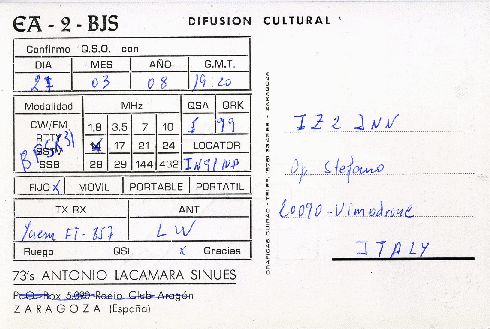 EA - 2 - BJS
DIFUSION CULTURAL
Confirmo Q.S.O. con
DIA MES AÑO G.M.T.
21 03 08 19:20
Modalidad MHz QSA QRK
CW/FM 1,8 3.5 7 10 5 99
RTTY 14 17 21 24 LOCATOR
SSTV
BPSK31
SSB 28 29 144 432 IN91NP
FIJO X MOVIL PORTABLE PORTATIL
TX RX ANT
Yaesu FT-857 LW
Ruego QSL X Gracias
73's ANTONIO LACAMARA SINUES
P.O. Box 5.090 Radio Club Aragón
ZARAGOZA (España)
IZ2INN
Op Stefano
20090 - Vimodrone
ITALY